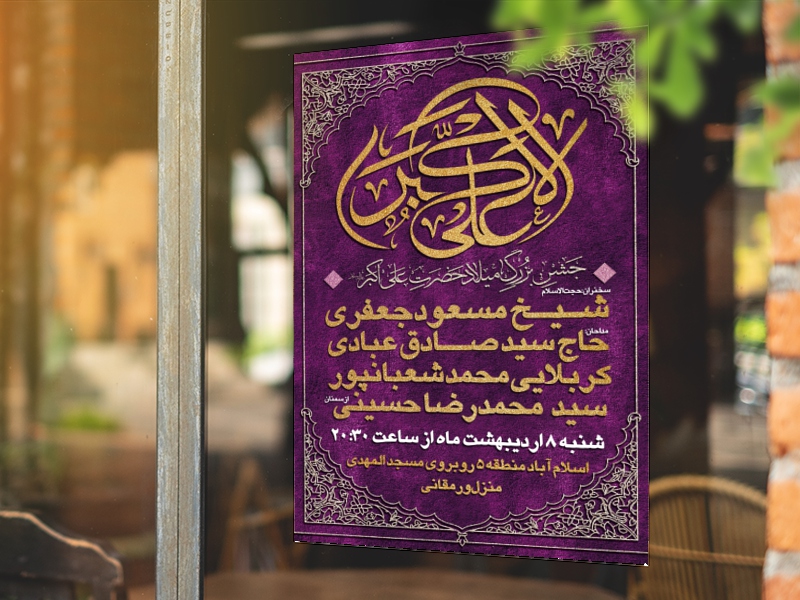 علی الاکبر
جشن بزرگ میلاد حضرت علی اکبر
سخنران: حجت الاسلام
شیخ مسعود جعفری
مداحان
حاج سید صادق عبادی
کربلایی محمد شعبانپور
سید محمدرضا حسینی از سمنان
شنبه ۸ اردیبهشت ماه از ساعت ۲۰:۳۰
اسلام آباد منطقه ۵ روبروی مسجد المهدی
منزل ورمقانی